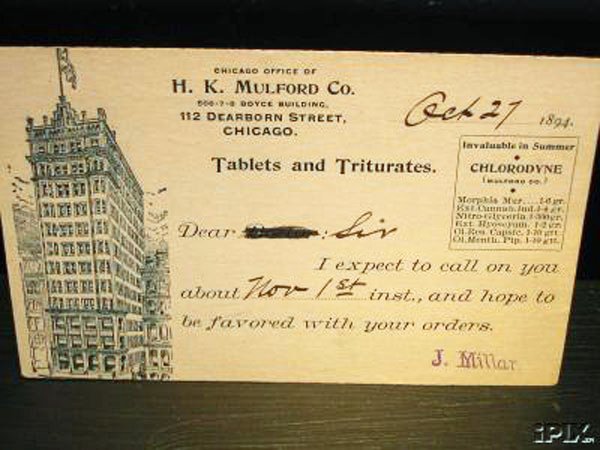 CHICAGO OFFICE OF
H. K. MULFORD CO.
506-7-8 BOYCE BUILDING,
112 DEARBORN STREET,
CHICAGO.
Oct 27 1894.
Tablets and Triturates.
Invaluable in Summer
CHLORODYNE
(MULFORD CO.)
Morphia Mur. ... 1-6 gr.
Ext. Cannab. Ind. 1-4 gr.
Nitro-Glycerin. 1-300 gr.
Ext. Hyoscyam. 1-2 gr.
Ol. Res. Capsic. 1-10 gtt.
Ol. Menth. Pip. 1-10 gtt.
Dear : Sir
I expect to call on you
about Nov 1st inst., and hope to
be favored with your orders.
J. Millar
iPIX